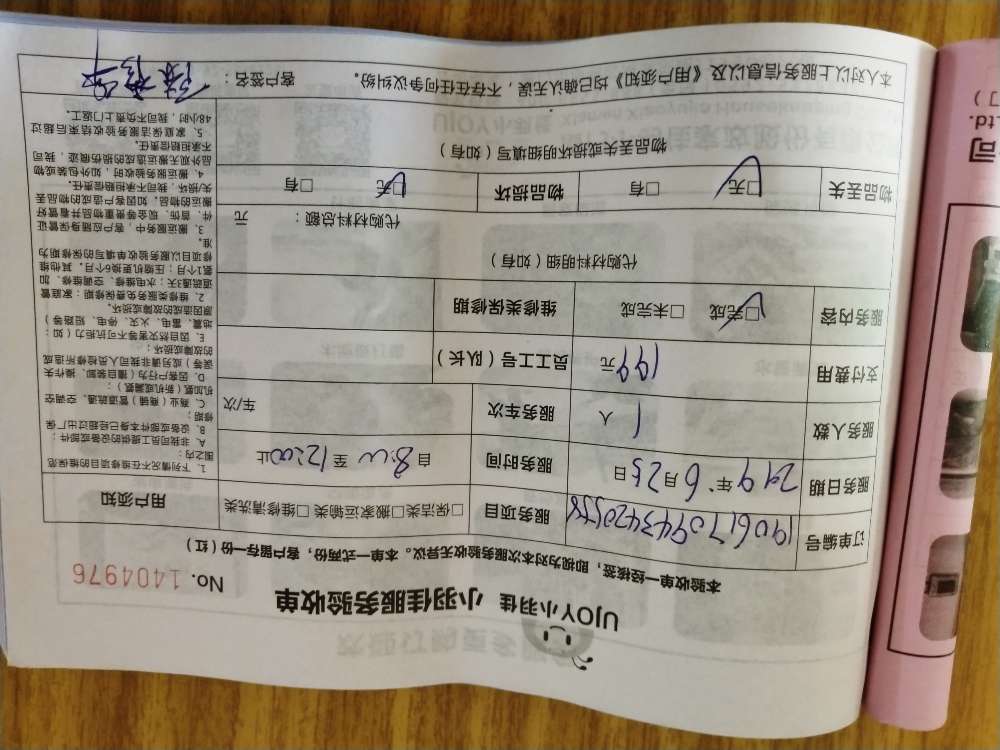 UJOY小羽佳 小羽佳服务验收单 No. 1404976
本验收单一经核签，即视为对本次服务验收无异议。本单一式两份，客户留存一份（红）
订单编号 服务项目 □保洁类□搬家运输类□维修清洗类 用户须知
服务日期 年 6月25日 服务时间 自8:00至12:00止
服务人数 1 人 服务车次 车/次
支付费用 199元 员工工号（队长）
服务内容 □完成 □未完成 维修类保修期
代购材料明细（如有）
代购材料总额： 元
物品丢失 □无 □有 物品损坏 □无 □有
物品丢失或损坏明细填写（如有）
1、下列情况不在维修项目的维保范
围之内：
A、非我司员工提供的设备或部件；
B、设备或部件本身已经超过出厂保
修期；
C、商业（商铺）管道疏通、空调空
机加氨（新机或漏氨）；
D、因客户行为（擅自装卸、操作失
误等）或另请非我司人员检修所造成
的故障或损坏；
E、因自然灾害等不可抗拒力（如：
地震、雷电、火灾、停电、短路等）
原因造成的故障或损坏。
2、维修类服务免费保修期：家庭管
道疏通3天；水电维修、空调维修、加
氨1个月；压缩机更换6个月，其他维
修项目以服务验收单填写的保修期为
准。
3、搬运服务中，客户应随身保管证
件、首饰、现金等贵重物品并看管好
搬运的物品，如因客户造成的物品丢
失、损坏，我司不承担赔偿责任。
4、搬运服务验收时，如外包装或物
品外观无搬运造成的损伤痕迹，我司
不承担赔偿责任。
5、家庭保洁服务验收结束后超过
48小时，我司不负责上门返工。
本人对以上服务信息以及《用户须知》均已确认无误，不存在任何争议纠纷。 客户签名：